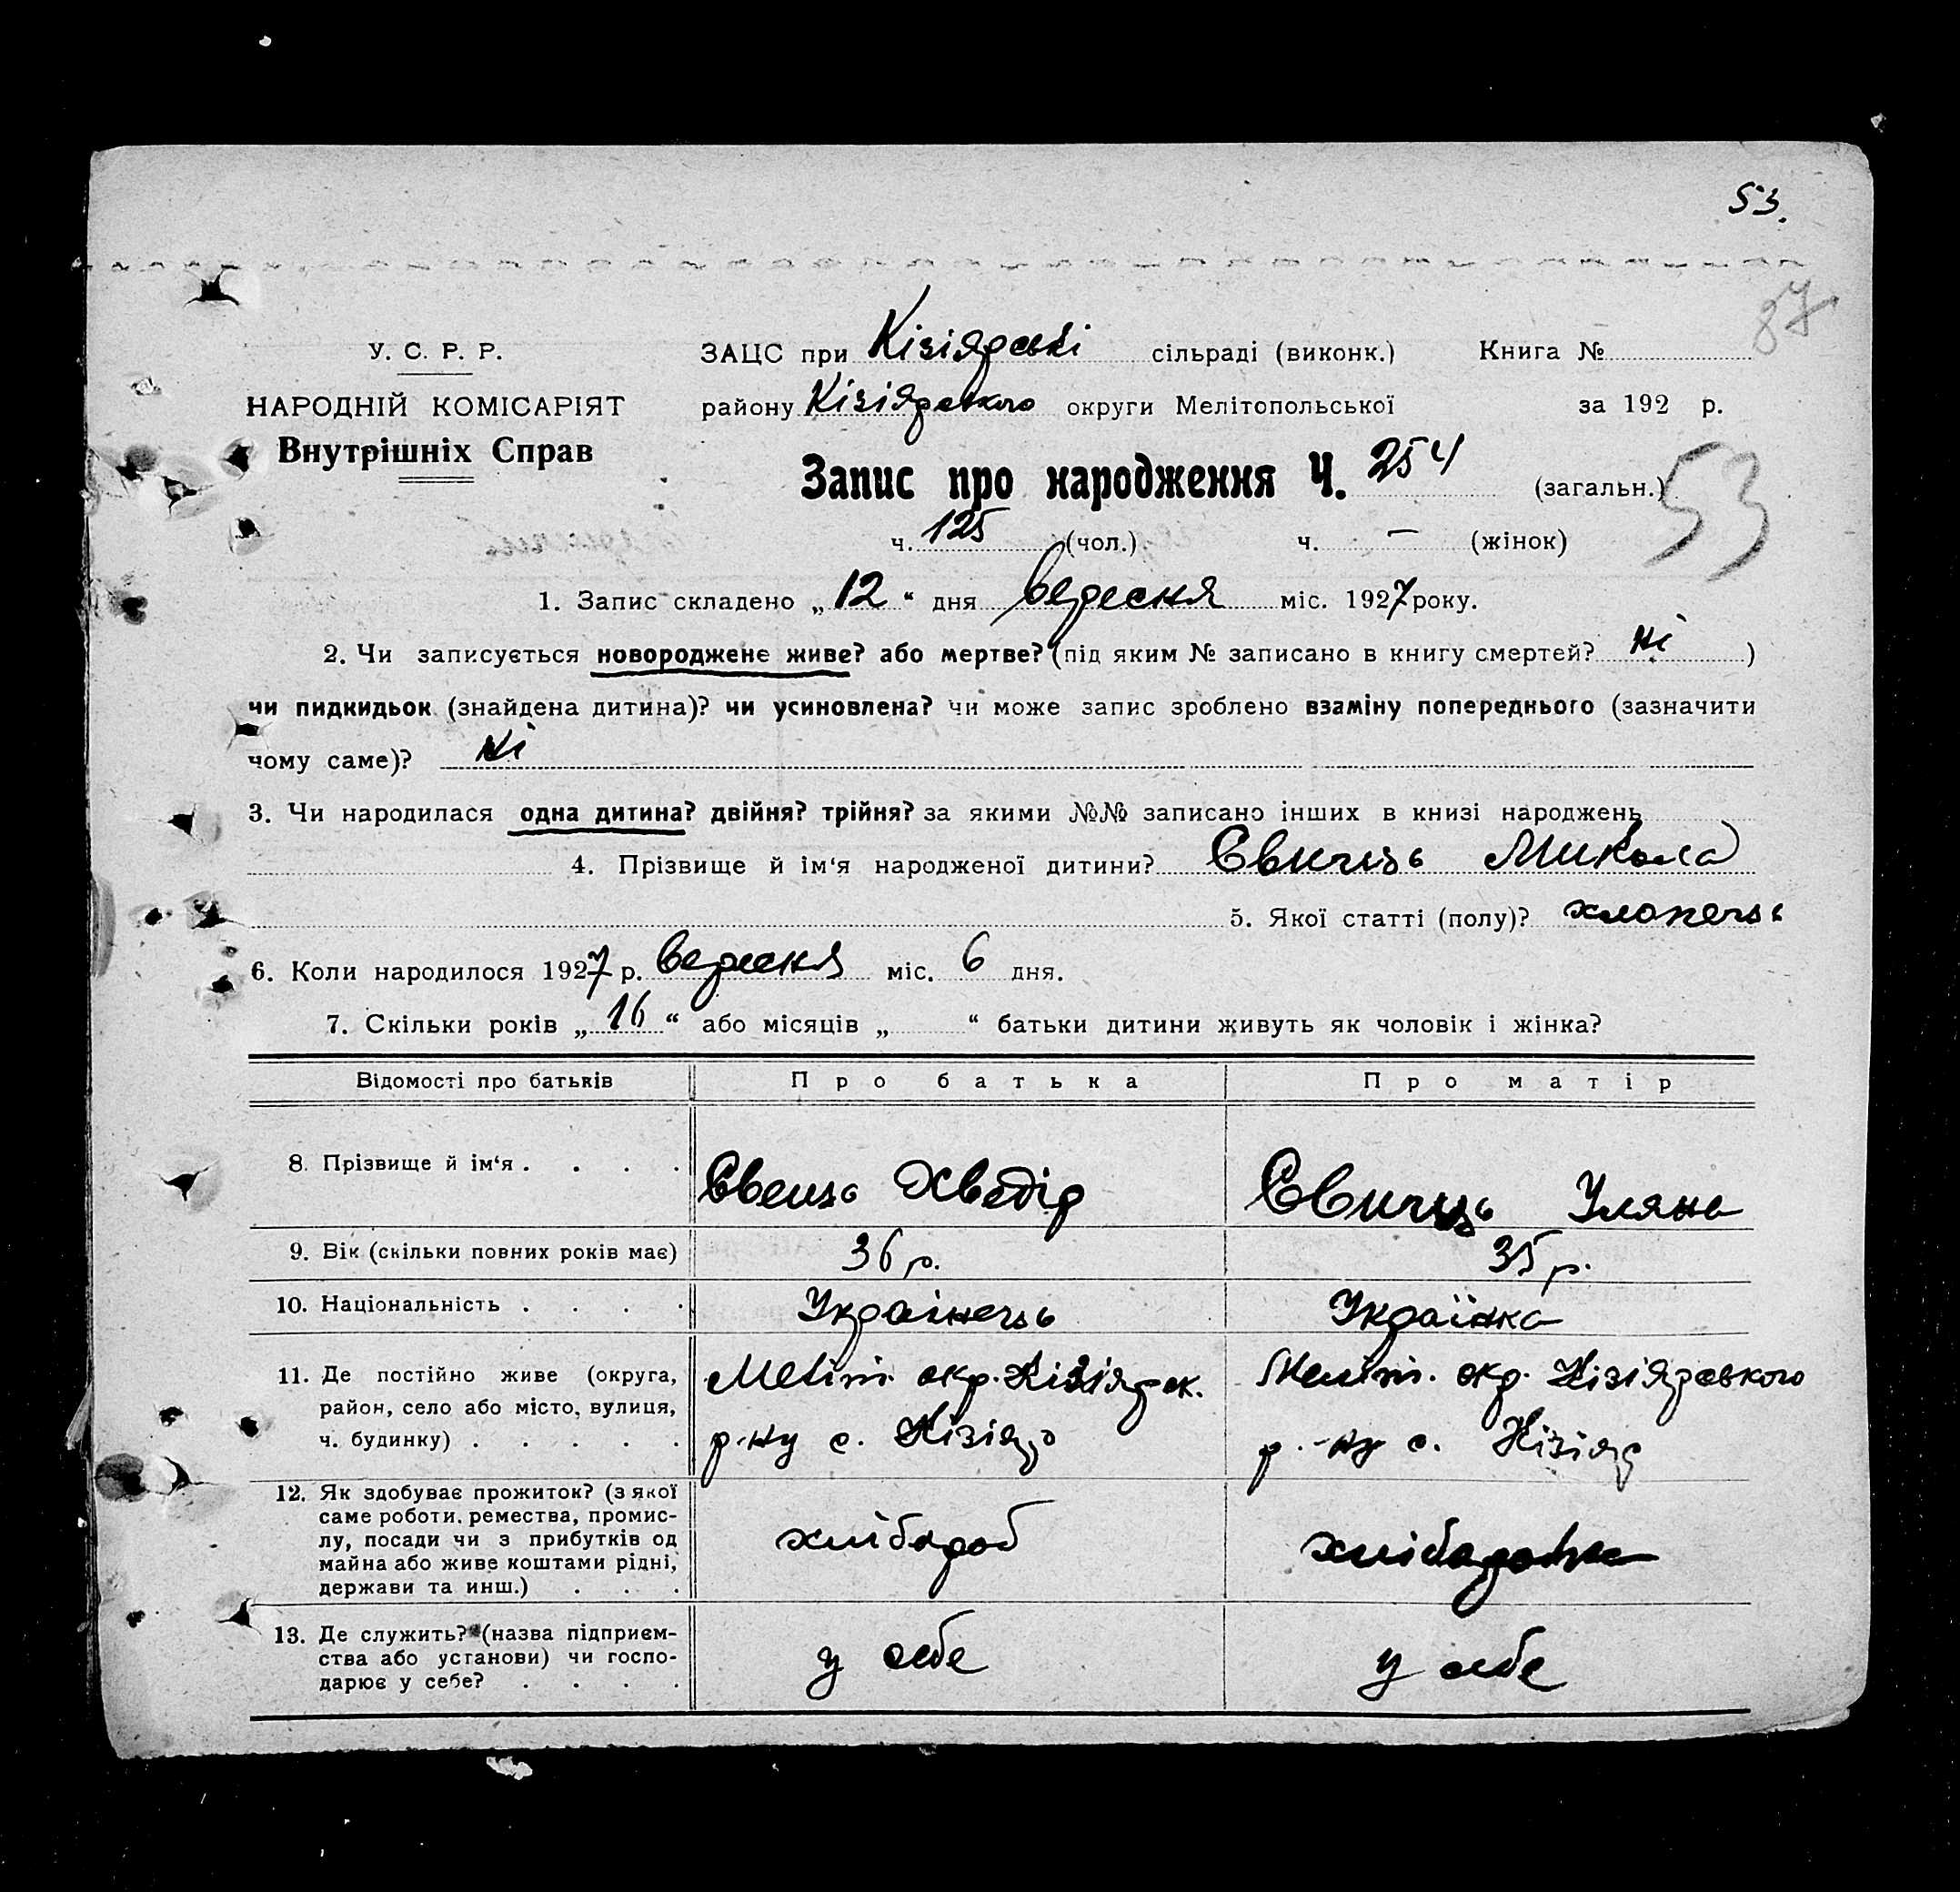 53.
87
У. С. Р. Р.
ЗАЦС при Кізіярські сільраді (виконк.) Книга №
НАРОДНІЙ КОМІСАРІЯТ
району Кізіярського округи Мелітопольської за 192 р.
Внутрішніх Справ
Запис про народження Ч. 254 (загальн.)
53
ч. 125 (чол.) ч. — (жінок)
1. Запис складено „12“ дня вересня міс. 1927 року.
2. Чи записується новороджене живе? або мертве? (під яким № записано в книгу смертей? ні )
чи пидкидьок (знайдена дитина)? чи усиновлена? чи може запис зроблено взаміну попереднього (зазначити
чому саме)? ні
3. Чи народилася одна дитина? двійня? трійня? за якими №№ записано інших в книзі народжень
4. Прізвище й ім‘я народженої дитини? Микола
5. Якої статті (полу)? хлопець
6. Коли народилося 1927 р. вересня міс. 6 дня.
7. Скільки років „16“ або місяців „ “ батьки дитини живуть як чоловік і жінка?
Відомості про батьків Про батька Про матір
8. Прізвище й ім‘я . . . . Хведір Уляна
9. Вік (скільки повних років має) 36 р. 35 р.
10. Національність . . . . Українець Українка
11. Де постійно живе (округа, Меліт. окр. Кізіярськ. Меліт. окр. Кізіярського
район, село або місто, вулиця,
ч. будинку) . . . . . р-ну с. Кізіяр р.-ну с. Кізіяр
12. Як здобуває прожиток? (з якої
саме роботи, ремества, промис-
лу, посади чи з прибутків од хлібороб хліборобка
майна або живе коштами рідні,
держави та инш.) . . .
13. Де служить? (назва підприєм-
ства або установи) чи госпо- у себе у себе
дарює у себе? . . . .